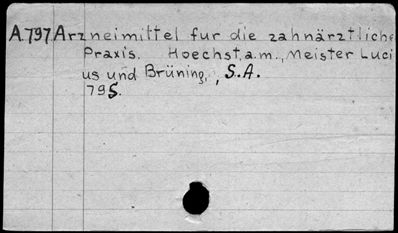 A.797 Arzneimittel fur die zahnärztliche
Praxis. Hoechst, a.m., Meister Luci
us und Brüning, , S.A.
795.